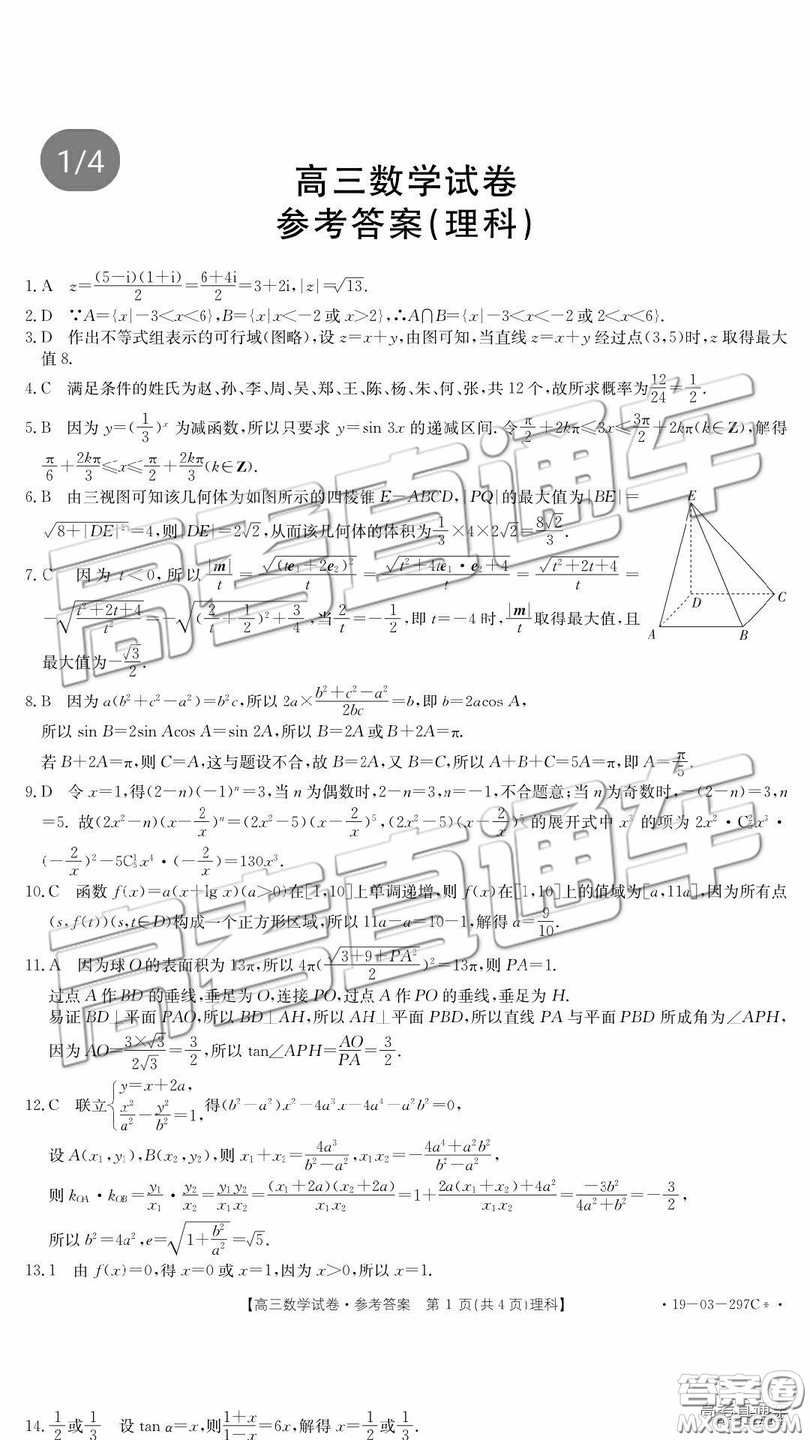 1/4
高三数学试卷
参考答案(理科)
1. A z=\frac{(5-i)(1+i)}{2}=\frac{6+4i}{2}=3+2i,|z|=\sqrt{13}.
2. D ∵A={x|-3<x<6},B={x|x<-2或x>2},∴A∩B={x|-3<x<-2或2<x<6}.
3. D 作出不等式组表示的可行域(图略),设z=x+y,由图可知,当直线z=x+y经过点(3,5)时,z取得最大
值8.
4. C 满足条件的姓氏为赵、孙、李、周、吴、郑、王、陈、杨、朱、何、张,共12个,故所求概率为\frac{12}{24}=\frac{1}{2}.
5. B 因为y=(\frac{1}{3})^x为减函数,所以只要求y=sin 3x的递减区间.令\frac{π}{2}+2kπ≤3x≤\frac{3π}{2}+2kπ(k∈Z),解得
\frac{π}{6}+\frac{2kπ}{3}≤x≤\frac{π}{2}+\frac{2kπ}{3}(k∈Z).
6. B 由三视图可知该几何体为如图所示的四棱锥E-ABCD,|PQ|的最大值为|BE|=
\sqrt{8+|DE|^2}=4,则|DE|=2\sqrt{2},从而该几何体的体积为\frac{1}{3}×4×2\sqrt{2}=\frac{8\sqrt{2}}{3}.
E
D
C
A
B
7. C 因为t<0,所以\frac{|m|}{t}=\frac{\sqrt{(te_1+2e_2)^2}}{t}=\frac{\sqrt{t^2+4te_1·e_2+4}}{t}=\frac{\sqrt{t^2+2t+4}}{t}=
-\sqrt{\frac{t^2+2t+4}{t^2}}=-\sqrt{(\frac{2}{t}+\frac{1}{2})^2+\frac{3}{4}},当\frac{2}{t}=-\frac{1}{2},即t=-4时,\frac{|m|}{t}取得最大值,且
最大值为-\frac{\sqrt{3}}{2}.
8. B 因为a(b^2+c^2-a^2)=b^2c,所以2a×\frac{b^2+c^2-a^2}{2bc}=b,即b=2acos A,
所以sin B=2sin Acos A=sin 2A,所以B=2A或B+2A=π.
若B+2A=π,则C=A,这与题设不合,故B=2A,又B=C,所以A+B+C=5A=π,即A=\frac{π}{5}.
9. D 令x=1,得(2-n)(-1)^n=3,当n为偶数时,2-n=3,n=-1,不合题意;当n为奇数时,-(2-n)=3,n
=5. 故(2x^2-n)(x-\frac{2}{x})^n=(2x^2-5)(x-\frac{2}{x})^5,(2x^2-5)(x-\frac{2}{x})^5的展开式中x^3的项为2x^2·C_5^2x^3·
(-\frac{2}{x})^2-5C_5^1x^4·(-\frac{2}{x})=130x^3.
10. C 函数f(x)=a(x+lg x)(a>0)在[1,10]上单调递增,则f(x)在[1,10]上的值域为[a,11a],因为所有点
(s,f(t))(s,t∈D)构成一个正方形区域,所以11a-a=10-1,解得a=\frac{9}{10}.
11. A 因为球O的表面积为13π,所以4π(\frac{\sqrt{3+9+PA^2}}{2})^2=13π,则PA=1.
过点A作BD的垂线,垂足为O,连接PO,过点A作PO的垂线,垂足为H.
易证BD⊥平面PAO,所以BD⊥AH,所以AH⊥平面PBD,所以直线PA与平面PBD所成角为∠APH,
因为AO=\frac{3×\sqrt{3}}{2\sqrt{3}}=\frac{3}{2},所以tan∠APH=\frac{AO}{PA}=\frac{3}{2}.
12. C 联立\begin{cases}y=x+2a,\\\frac{x^2}{a^2}-\frac{y^2}{b^2}=1,\end{cases}得(b^2-a^2)x^2-4a^3x-4a^4-a^2b^2=0,
设A(x_1,y_1),B(x_2,y_2),则x_1+x_2=\frac{4a^3}{b^2-a^2},x_1x_2=-\frac{4a^4+a^2b^2}{b^2-a^2},
则k_{OA}·k_{OB}=\frac{y_1}{x_1}·\frac{y_2}{x_2}=\frac{y_1y_2}{x_1x_2}=\frac{(x_1+2a)(x_2+2a)}{x_1x_2}=1+\frac{2a(x_1+x_2)+4a^2}{x_1x_2}=\frac{-3b^2}{4a^2+b^2}=-\frac{3}{2},
所以b^2=4a^2,e=\sqrt{1+\frac{b^2}{a^2}}=\sqrt{5}.
13. 1 由f(x)=0,得x=0或x=1,因为x>0,所以x=1.
【高三数学试卷·参考答案 第1页(共4页)理科】
·19-03-297C*·
14. \frac{1}{2}或\frac{1}{3} 设tan α=x,则\frac{1+x}{1-x}=6x,解得x=\frac{1}{2}或\frac{1}{3}.
高考直通车
高考直通车
高考直通车
答案圈
MXQE.COM